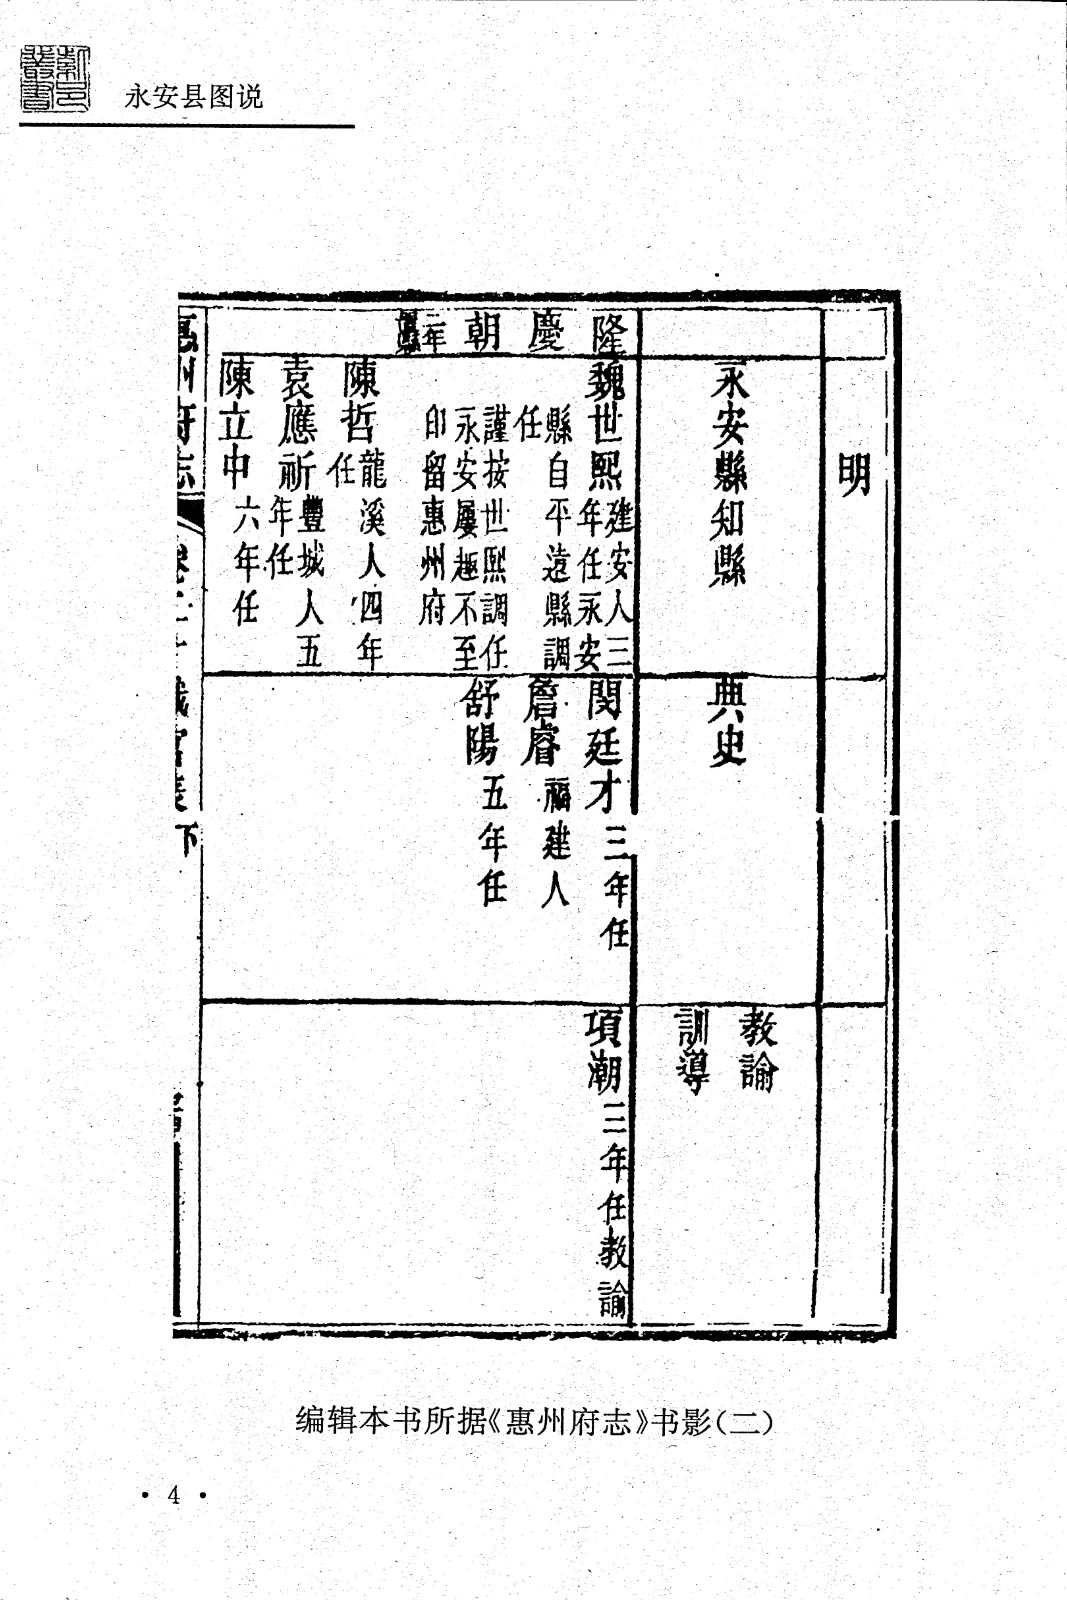 永安县图说
明
永安縣知縣
典史
教諭
訓導
隆
慶
朝
三年
置縣
魏世熙建安人三
年任永安
縣自平遠縣調
任
謹按世熙調任
永安屢趣不至
印留惠州府
陳哲龍溪人四年
任
袁應祈豐城人五
年任
陳立中六年任
閔廷才三年任
詹睿福建人
舒陽五年任
項潮三年任教諭
惠州府志
職官表下
编辑本书所据《惠州府志》书影(二)
· 4 ·